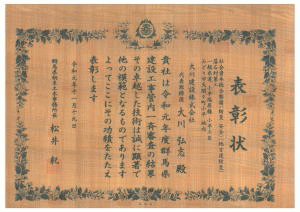 表彰状
大川建設株式会社
代表取締役 大川 弘志 殿
貴社は令和元年度群馬県
建設工事管内一斉審査の結果
その卓越した技術は誠に顕著で
他の模範となるものであります
よってここにその功績をたたえ
表彰します
令和元年十一月十九日
松井 乾